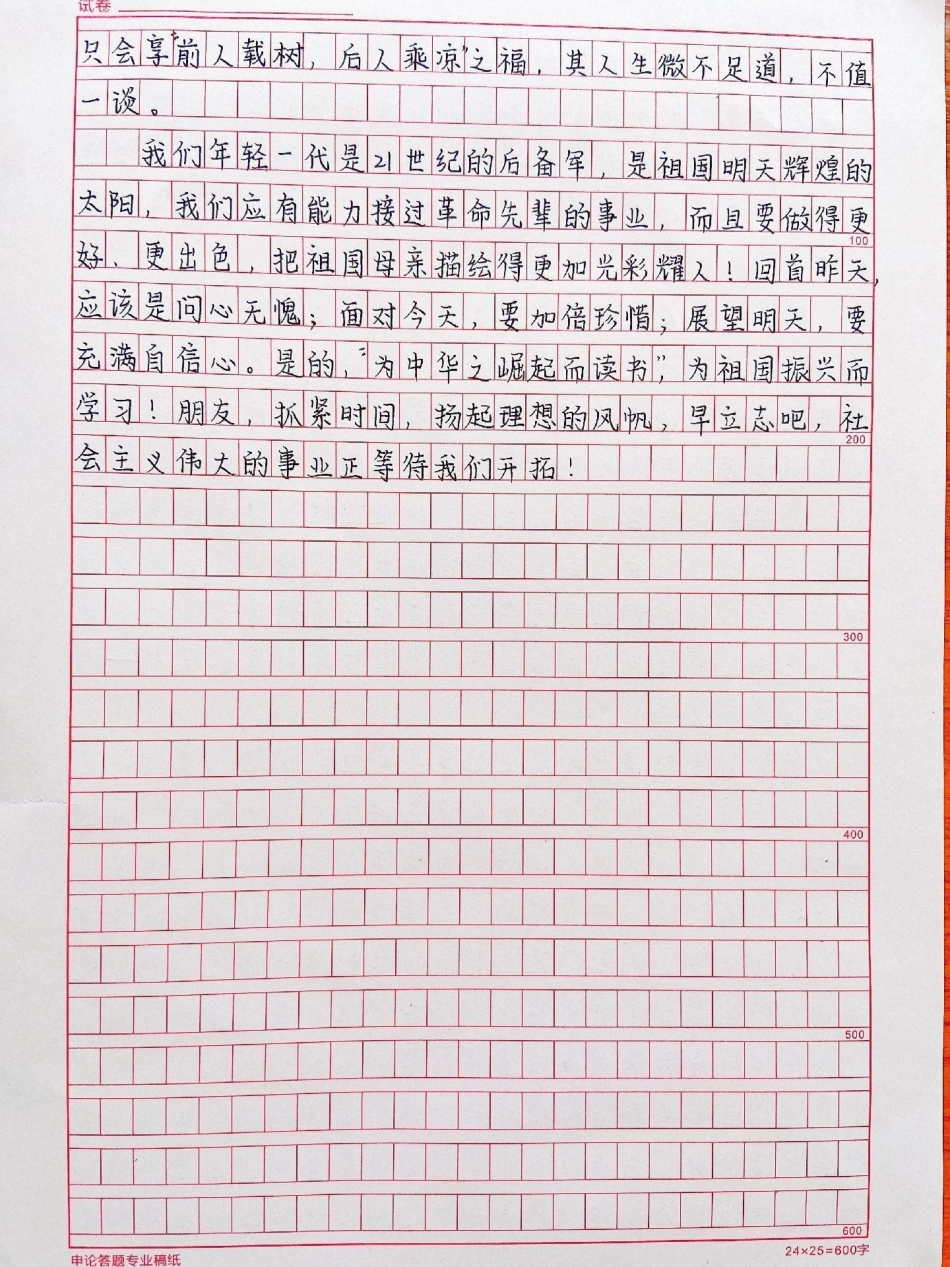 试卷
只会享“前人载树，后人乘凉”之福，其人生微不足道，不值
一谈。
我们年轻一代是21世纪的后备军，是祖国明天辉煌的
太阳，我们应有能力接过革命先辈的事业，而且要做得更
100
好、更出色，把祖国母亲描绘得更加光彩耀人！回首昨天，
应该是问心无愧；面对今天，要加倍珍惜；展望明天，要
充满自信心。是的，“为中华之崛起而读书”，为祖国振兴而
学习！朋友，抓紧时间，扬起理想的风帆，早立志吧，社
200
会主义伟大的事业正等待我们开拓！
300
400
500
600
申论答题专业稿纸
24×25=600字